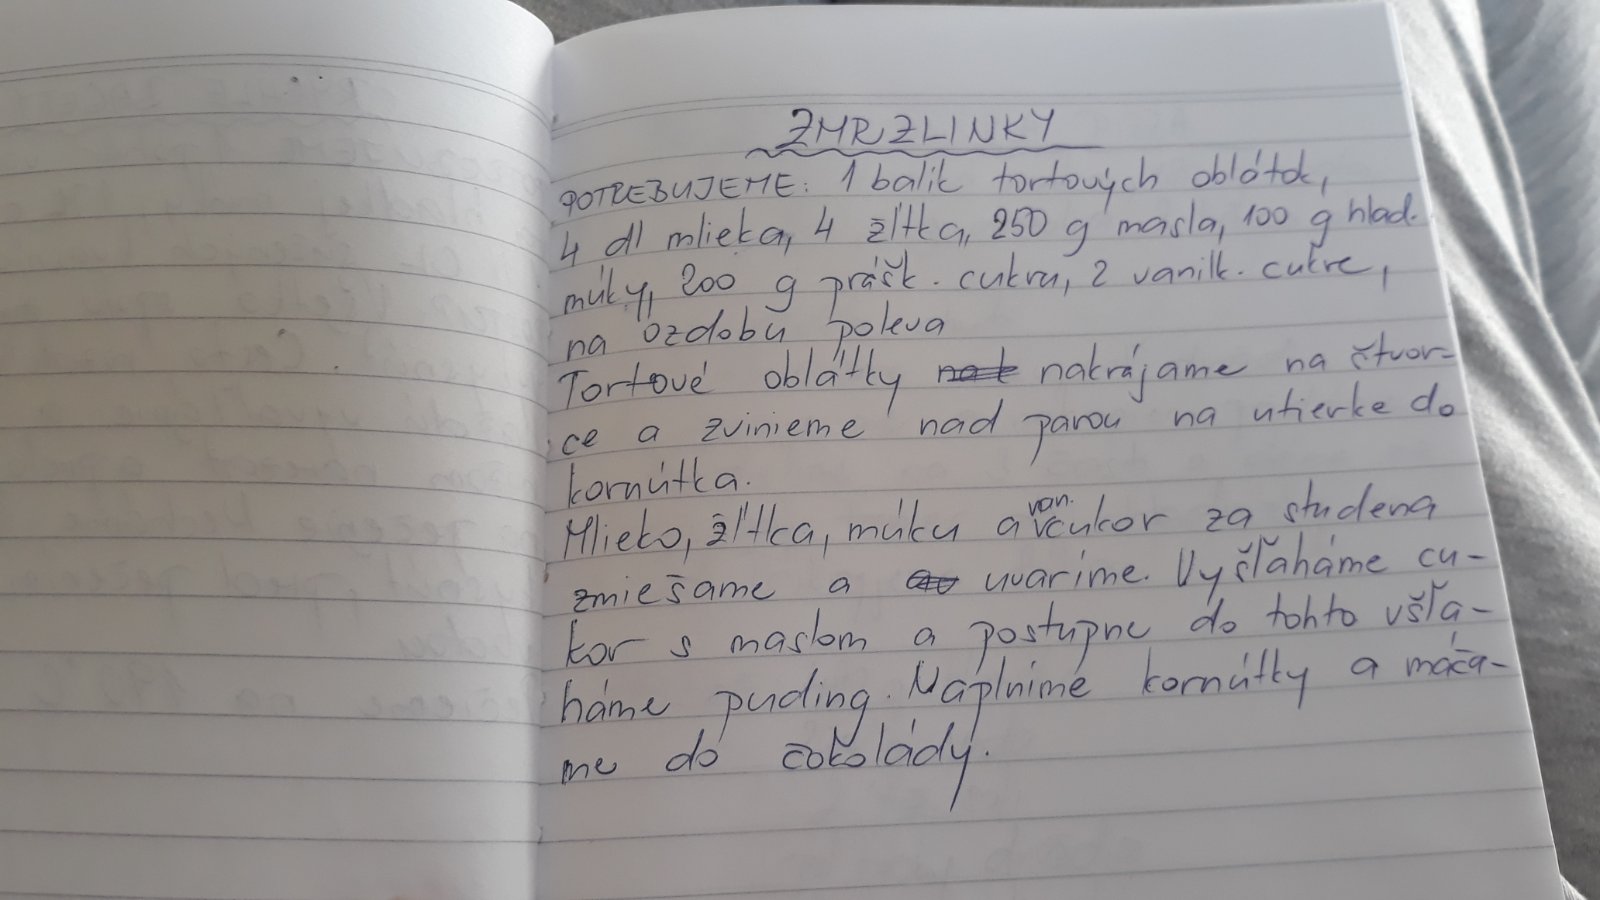 ZMRZLINKY
POTREBUJEME: 1 balík tortových oblátok,
4 dl mlieka, 4 žĺtka, 250 g masla, 100 g hlad.
múky, 200 g prášk. cukru, 2 vanilk. cukre,
na ozdobu poleva
Tortové oblátky nakrájame na štvor-
ce a zvinieme nad parou na utierke do
kornútka.
Mlieko, žĺtka, múku a van. cukor za studena
zmiešame a uvaríme. Vyšľaháme cu-
kor s maslom a postupne do tohto všľa-
háme puding. Naplníme kornútky a máča-
me do čokolády.